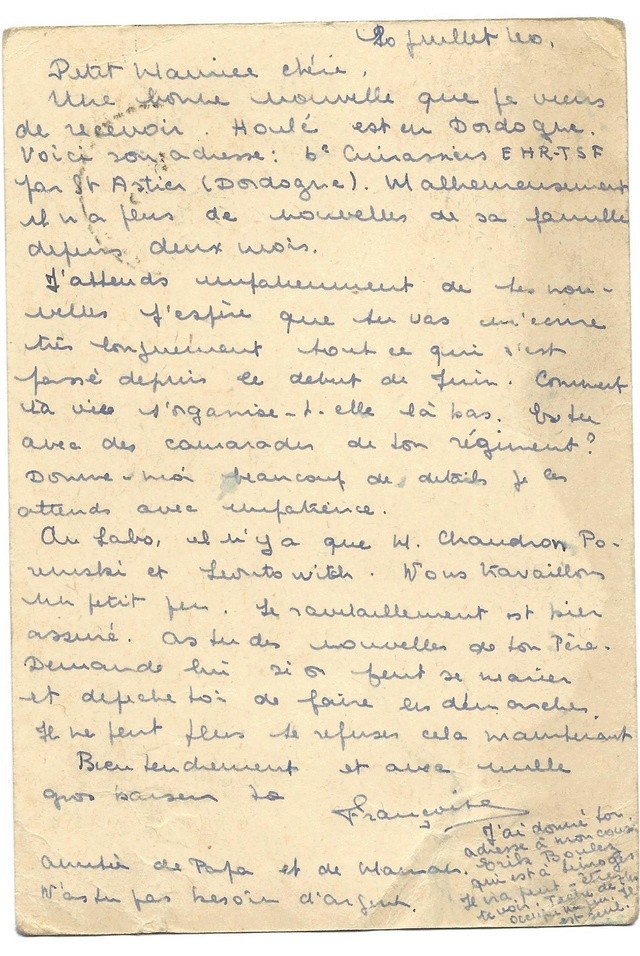 20 juillet 40.
Petit Maurice chéri,
Une bonne nouvelle que je viens
de recevoir. Houlé est en Dordogne.
Voici son adresse: 6e Cuirassiers EHR-TSF
par St Astier (Dordogne). Malheureusement
il n'a plus de nouvelles de sa famille
depuis deux mois.
J'attends impatiemment de tes nou-
velles J'espère que tu vas m'écrire
très longuement tout ce qui s'est
passé depuis le début de Juin. Comment
ta vie s'organise-t-elle là bas. Es tu
avec des camarades de ton régiment?
Donne-moi beaucoup de détails je les
attends avec impatience.
Au Labo, il n'y a que M. Chaudron Po-
remski et Lewitowitch. Nous travaillons
un petit peu. Le ravitaillement est bien
assuré. As tu des nouvelles de ton Père.
Demande lui si on peut se marier
et dépêche toi de faire les démarches.
Il ne peut plus te refuser cela maintenant
Bien tendrement et avec mille
gros baisers ta
Françoise
Amitiés de Papa et de Maman.
N'as tu pas besoin d'argent.
J'ai donné ton
adresse à mon cousin
Erik Boulez
qui est à Limoges
Il ira peut-être
te voir. Tâche de t'en
occuper un peu. Il
est seul.